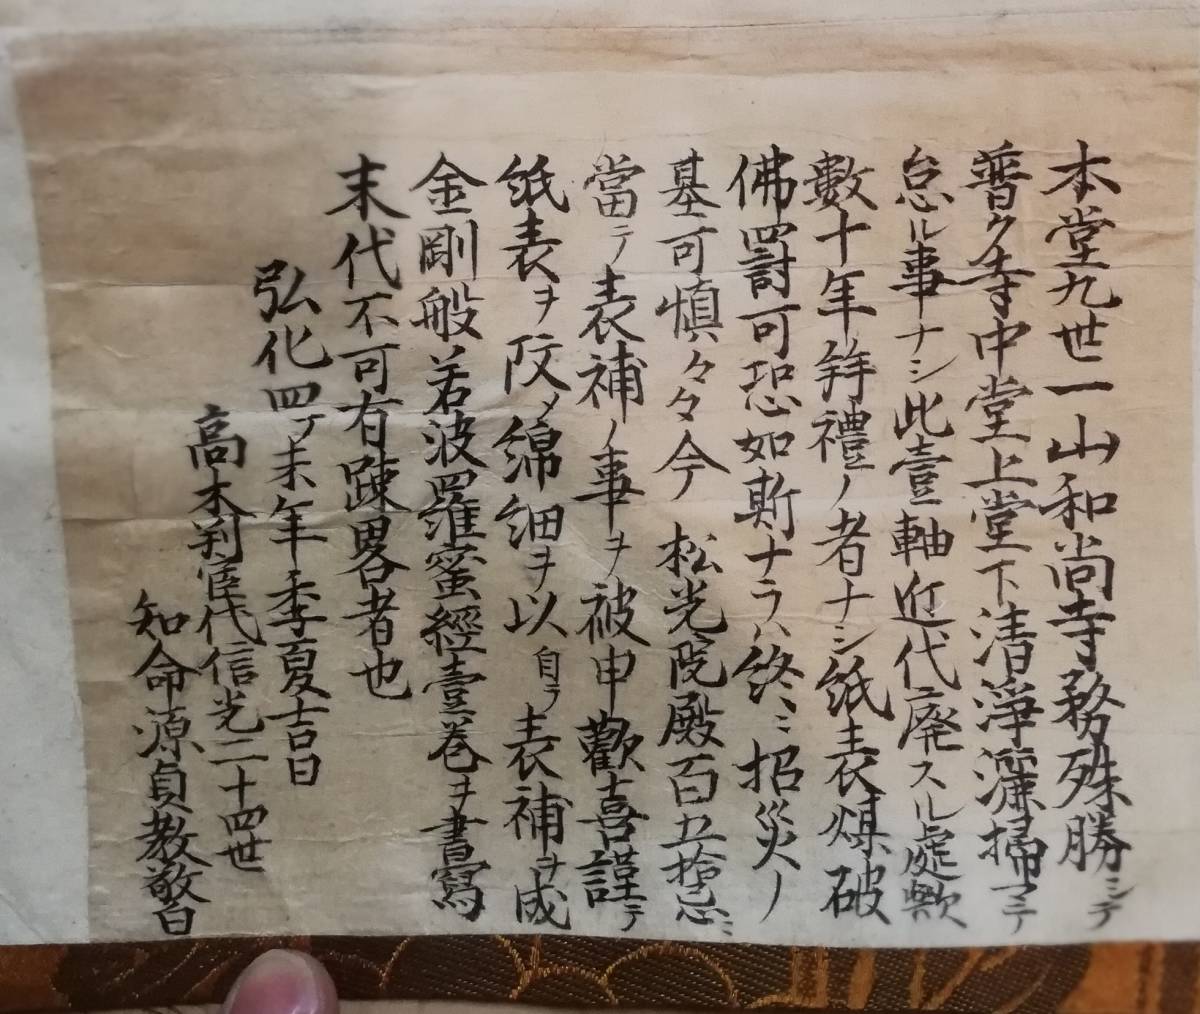 本堂九世一山和尚寺務殊勝シテ
普ク寺中堂上堂下清淨灑掃マテ
怠ル事ナシ此壹軸近代廃スル處歟
數十年拜禮ノ者ナシ紙表煤破
佛罰可恐如斯ナラハ終ニ招災ノ
基可慎々々今 松光院殿百五拾忌ニ
當テ表補ノ事ヲ被申歡喜謹テ
紙表ヲ改メ綿細ヲ以自ラ表補ヲ成
金剛般若波羅蜜經壹巻ヲ書寫
末代不可有踈畧者也
弘化四丁未年季夏吉日
高木判官代信光二十四世
知命源貞教敬白